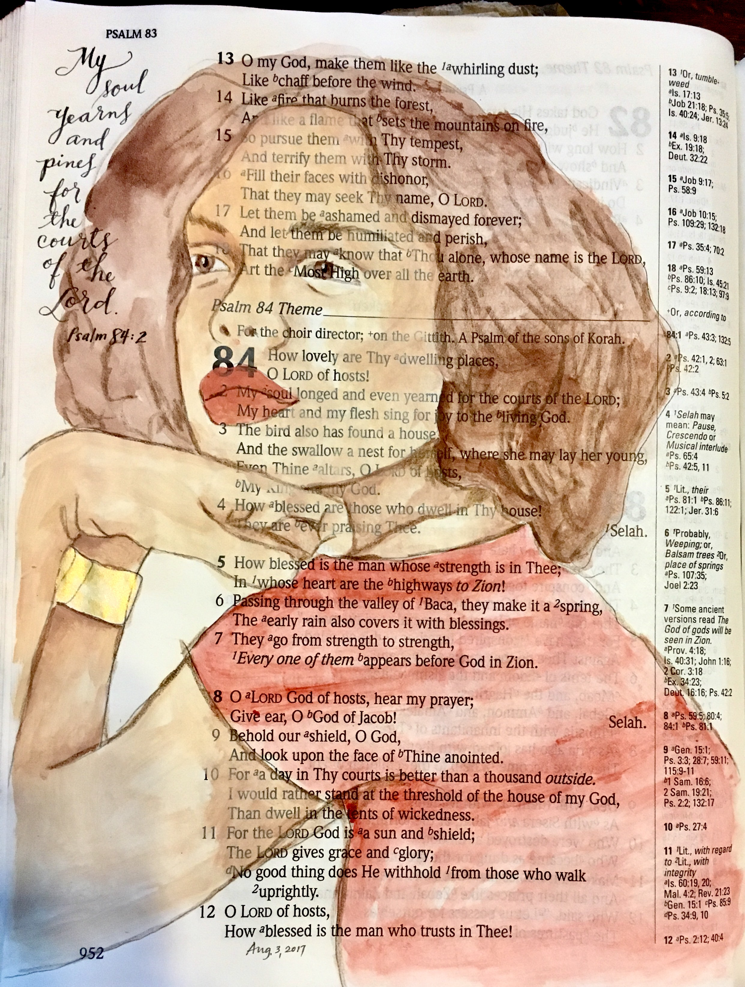 PSALM 83
My
soul
yearns
and
pines
for
the
courts
of the
Lord.
Psalm 84:2
13 O my God, make them like the 1awhirling dust;
Like bchaff before the wind.
14 Like afire that burns the forest,
And like a flame that bsets the mountains on fire,
15 So pursue them awith Thy tempest,
And terrify them with Thy storm.
16 aFill their faces with dishonor,
That they may seek Thy name, O LORD.
17 Let them be aashamed and dismayed forever;
And let them be humiliated and perish,
18 That they may aknow that bThou alone, whose name is the LORD,
Art the cMost High over all the earth.
Psalm 84 Theme
For the choir director; +on the Gittith. A Psalm of the sons of Korah.
84 How lovely are Thy adwelling places,
O LORD of hosts!
2 My asoul longed and even yearned for the courts of the LORD;
My heart and my flesh sing for joy to the bliving God.
3 The bird also has found a house,
And the swallow a nest for herself, where she may lay her young,
Even Thine aaltars, O LORD of hosts,
bMy King and my God.
4 How ablessed are those who dwell in Thy house!
They are bever praising Thee. 1Selah.
5 How blessed is the man whose astrength is in Thee;
In 1whose heart are the bhighways to Zion!
6 Passing through the valley of 1Baca, they make it a 2spring,
The aearly rain also covers it with blessings.
7 They ago from strength to strength,
1Every one of them bappears before God in Zion.
8 O aLORD God of hosts, hear my prayer;
Give ear, O bGod of Jacob! Selah.
9 Behold our ashield, O God,
And look upon the face of bThine anointed.
10 For aa day in Thy courts is better than a thousand outside.
I would rather stand at the threshold of the house of my God,
Than dwell in the tents of wickedness.
11 For the LORD God is aa sun and bshield;
The LORD gives grace and cglory;
dNo good thing does He withhold 1from those who walk
2uprightly.
12 O LORD of hosts,
How ablessed is the man who trusts in Thee!
952
Aug 3, 2017
13 1Or, tumble-
weed
aIs. 17:13
bJob 21:18; Ps. 35:5;
Is. 40:24; Jer. 13:24
14 aIs. 9:18
bEx. 19:18;
Deut. 32:22
15 aJob 9:17;
Ps. 58:9
16 aJob 10:15;
Ps. 109:29; 132:18
17 aPs. 35:4; 70:2
18 aPs. 59:13
bPs. 86:10; Is. 45:21
cPs. 9:2; 18:13; 97:9
+Or, according to
84:1 aPs. 43:3; 132:5
2 aPs. 42:1, 2; 63:1
bPs. 42:2
3 aPs. 43:4 bPs. 5:2
4 1Selah may
mean: Pause,
Crescendo or
Musical interlude
aPs. 65:4
bPs. 42:5, 11
5 1Lit., their
aPs. 81:1 bPs. 86:11;
122:1; Jer. 31:6
6 1Probably,
Weeping; or,
Balsam trees 2Or,
place of springs
aPs. 107:35;
Joel 2:23
7 1Some ancient
versions read The
God of gods will be
seen in Zion.
aProv. 4:18;
Is. 40:31; John 1:16;
2 Cor. 3:18
bEx. 34:23;
Deut. 16:16; Ps. 42:2
8 aPs. 59:5; 80:4;
84:1 bPs. 81:1
9 aGen. 15:1;
Ps. 3:3; 28:7; 59:11;
115:9-11
b1 Sam. 16:6;
2 Sam. 19:21;
Ps. 2:2; 132:17
10 aPs. 27:4
11 1Lit., with regard
to 2Lit., with
integrity
aIs. 60:19, 20;
Mal. 4:2; Rev. 21:23
bGen. 15:1 cPs. 85:9
dPs. 34:9, 10
12 aPs. 2:12; 40:4